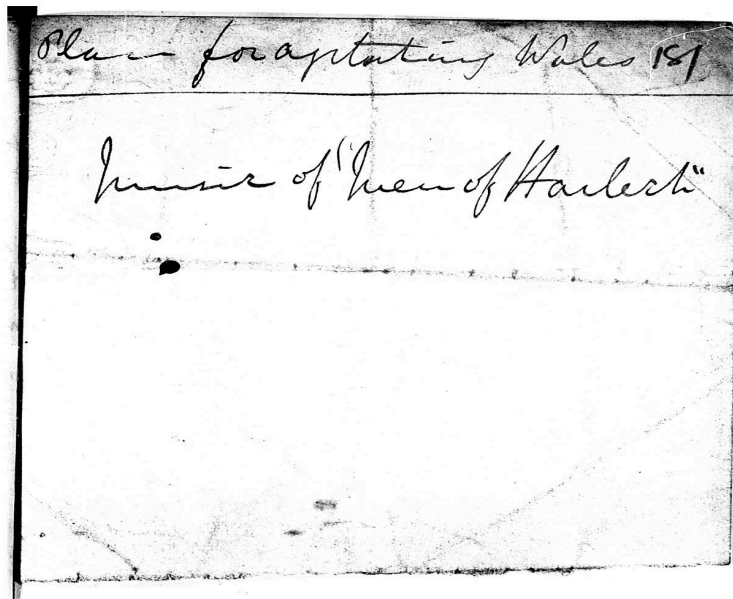 Plan for agitating Wales 181
Music of "Men of Harlech"